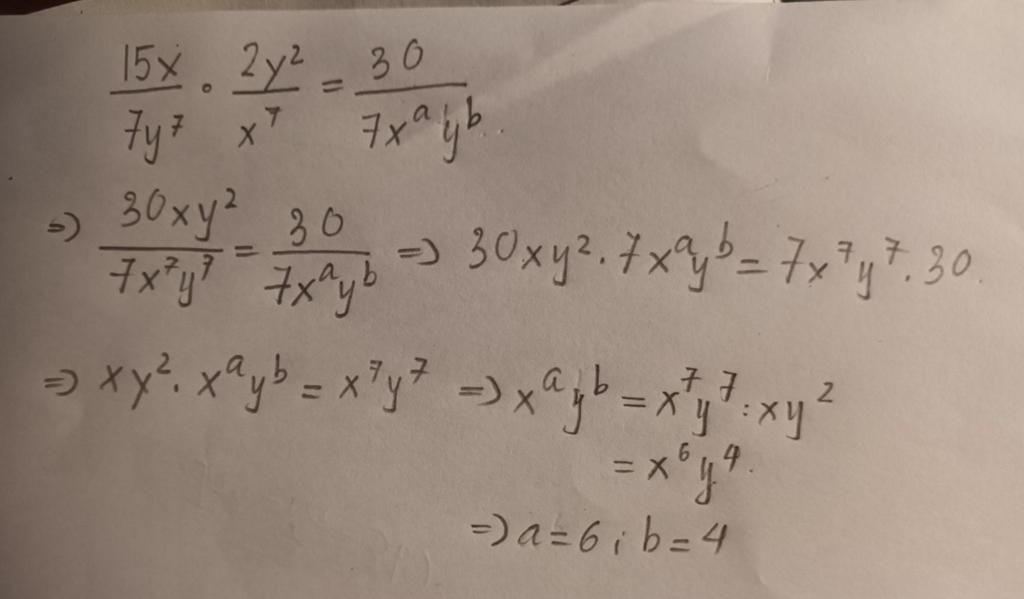 15x/7y⁷ · 2y²/x⁷ = 30/7xᵃyᵇ
=> 30xy²/7x⁷y⁷ = 30/7xᵃyᵇ => 30xy² · 7xᵃyᵇ = 7x⁷y⁷ · 30.
=> xy² · xᵃyᵇ = x⁷y⁷ => xᵃyᵇ = x⁷y⁷ : xy²
= x⁶y⁴.
=> a = 6 ; b = 4